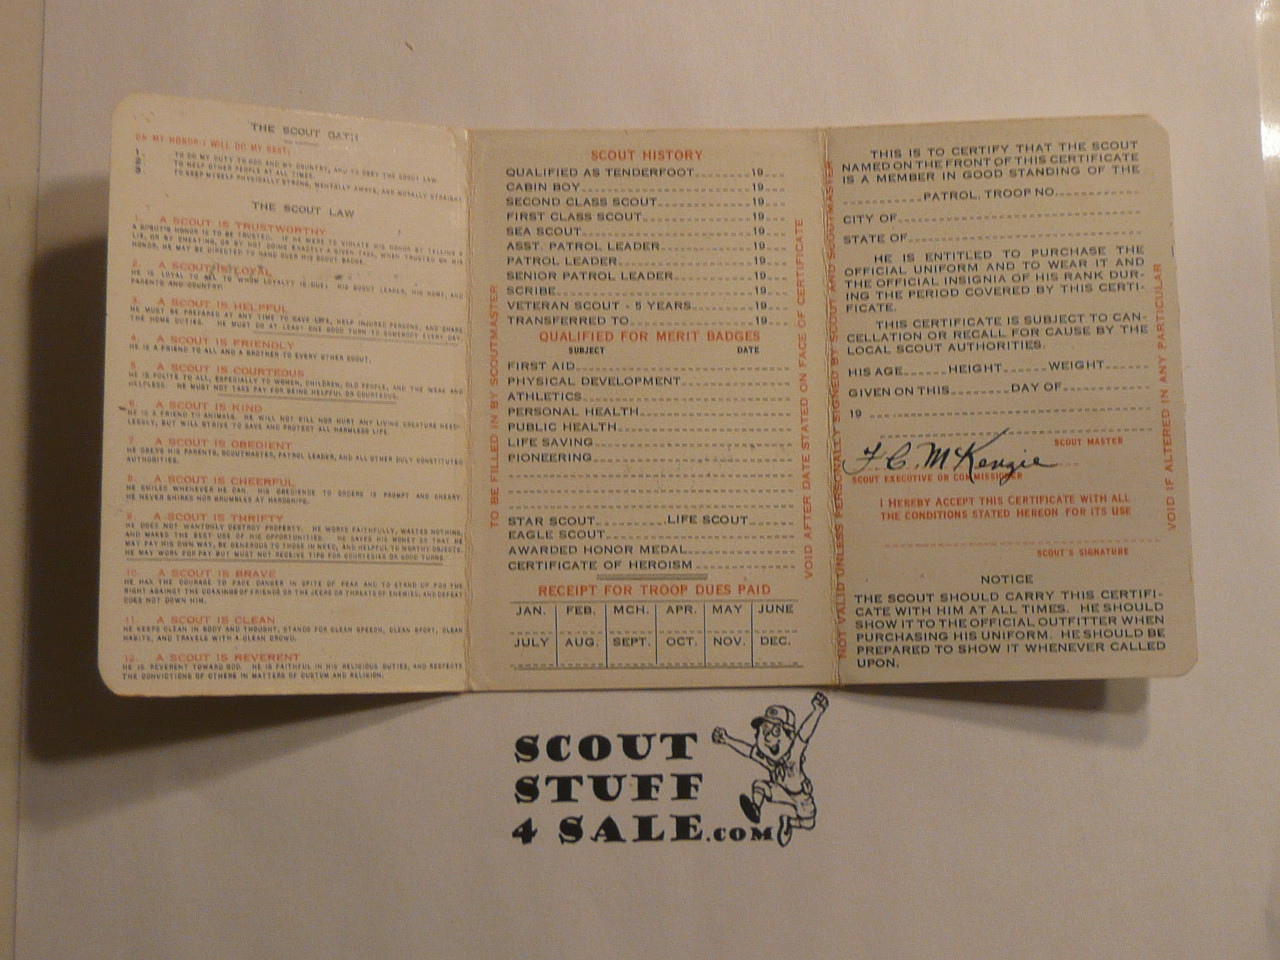 THE SCOUT OATH
ON MY HONOR I WILL DO MY BEST:
1. TO DO MY DUTY TO GOD AND MY COUNTRY, AND TO OBEY THE SCOUT LAW.
2. TO HELP OTHER PEOPLE AT ALL TIMES.
3. TO KEEP MYSELF PHYSICALLY STRONG, MENTALLY AWAKE, AND MORALLY STRAIGHT
THE SCOUT LAW
1. A SCOUT IS TRUSTWORTHY
A SCOUT'S HONOR IS TO BE TRUSTED. IF HE WERE TO VIOLATE HIS HONOR BY TELLING A
LIE, OR BY CHEATING, OR BY NOT DOING EXACTLY A GIVEN TASK, WHEN TRUSTED ON HIS
HONOR, HE MAY BE DIRECTED TO HAND OVER HIS SCOUT BADGE.
2. A SCOUT IS LOYAL
HE IS LOYAL TO ALL TO WHOM LOYALTY IS DUE: HIS SCOUT LEADER, HIS HOME, AND
PARENTS AND COUNTRY.
3. A SCOUT IS HELPFUL
HE MUST BE PREPARED AT ANY TIME TO SAVE LIFE, HELP INJURED PERSONS, AND SHARE
THE HOME DUTIES. HE MUST DO AT LEAST ONE GOOD TURN TO SOMEBODY EVERY DAY.
4. A SCOUT IS FRIENDLY
HE IS A FRIEND TO ALL AND A BROTHER TO EVERY OTHER SCOUT.
5. A SCOUT IS COURTEOUS
HE IS POLITE TO ALL, ESPECIALLY TO WOMEN, CHILDREN, OLD PEOPLE, AND THE WEAK AND
HELPLESS. HE MUST NOT TAKE PAY FOR BEING HELPFUL OR COURTEOUS.
6. A SCOUT IS KIND
HE IS A FRIEND TO ANIMALS. HE WILL NOT KILL NOR HURT ANY LIVING CREATURE NEED-
LESSLY, BUT WILL STRIVE TO SAVE AND PROTECT ALL HARMLESS LIFE.
7. A SCOUT IS OBEDIENT
HE OBEYS HIS PARENTS, SCOUTMASTER, PATROL LEADER, AND ALL OTHER DULY CONSTITUTED
AUTHORITIES.
8. A SCOUT IS CHEERFUL
HE SMILES WHENEVER HE CAN. HIS OBEDIENCE TO ORDERS IS PROMPT AND CHEERY.
HE NEVER SHIRKS NOR GRUMBLES AT HARDSHIPS.
9. A SCOUT IS THRIFTY
HE DOES NOT WANTONLY DESTROY PROPERTY. HE WORKS FAITHFULLY, WASTES NOTHING,
AND MAKES THE BEST USE OF HIS OPPORTUNITIES. HE SAVES HIS MONEY SO THAT HE
MAY PAY HIS OWN WAY, BE GENEROUS TO THOSE IN NEED, AND HELPFUL TO WORTHY OBJECTS.
HE MAY WORK FOR PAY BUT MUST NOT RECEIVE TIPS FOR COURTESIES OR GOOD TURNS.
10. A SCOUT IS BRAVE
HE HAS THE COURAGE TO FACE DANGER IN SPITE OF FEAR AND TO STAND UP FOR THE
RIGHT AGAINST THE COAXINGS OF FRIENDS OR THE JEERS OR THREATS OF ENEMIES, AND DEFEAT
DOES NOT DOWN HIM.
11. A SCOUT IS CLEAN
HE KEEPS CLEAN IN BODY AND THOUGHT, STANDS FOR CLEAN SPEECH, CLEAN SPORT, CLEAN
HABITS, AND TRAVELS WITH A CLEAN CROWD.
12. A SCOUT IS REVERENT
HE IS REVERENT TOWARD GOD. HE IS FAITHFUL IN HIS RELIGIOUS DUTIES, AND RESPECTS
THE CONVICTIONS OF OTHERS IN MATTERS OF CUSTOM AND RELIGION.
TO BE FILLED IN BY SCOUTMASTER
SCOUT HISTORY
QUALIFIED AS TENDERFOOT 19
CABIN BOY 19
SECOND CLASS SCOUT 19
FIRST CLASS SCOUT 19
SEA SCOUT 19
ASST. PATROL LEADER 19
PATROL LEADER 19
SENIOR PATROL LEADER 19
SCRIBE 19
VETERAN SCOUT - 5 YEARS 19
TRANSFERRED TO 19
QUALIFIED FOR MERIT BADGES
SUBJECT DATE
FIRST AID
PHYSICAL DEVELOPMENT
ATHLETICS
PERSONAL HEALTH
PUBLIC HEALTH
LIFE SAVING
PIONEERING
STAR SCOUT LIFE SCOUT
EAGLE SCOUT
AWARDED HONOR MEDAL
CERTIFICATE OF HEROISM
RECEIPT FOR TROOP DUES PAID
JAN. FEB. MCH. APR. MAY JUNE
JULY AUG. SEPT. OCT. NOV. DEC.
VOID AFTER DATE STATED ON FACE OF CERTIFICATE
NOT VALID UNLESS PERSONALLY SIGNED BY SCOUT AND SCOUTMASTER
THIS IS TO CERTIFY THAT THE SCOUT
NAMED ON THE FRONT OF THIS CERTIFICATE
IS A MEMBER IN GOOD STANDING OF THE
PATROL, TROOP NO.
CITY OF
STATE OF
HE IS ENTITLED TO PURCHASE THE
OFFICIAL UNIFORM AND TO WEAR IT AND
THE OFFICIAL INSIGNIA OF HIS RANK DUR-
ING THE PERIOD COVERED BY THIS CERTI-
FICATE.
THIS CERTIFICATE IS SUBJECT TO CAN-
CELLATION OR RECALL FOR CAUSE BY THE
LOCAL SCOUT AUTHORITIES.
HIS AGE HEIGHT WEIGHT
GIVEN ON THIS DAY OF
19
SCOUT MASTER
F. C. McKenzie
SCOUT EXECUTIVE OR COMMISSIONER
I HEREBY ACCEPT THIS CERTIFICATE WITH ALL
THE CONDITIONS STATED HEREON FOR ITS USE
SCOUT'S SIGNATURE
NOTICE
THE SCOUT SHOULD CARRY THIS CERTIFI-
CATE WITH HIM AT ALL TIMES. HE SHOULD
SHOW IT TO THE OFFICIAL OUTFITTER WHEN
PURCHASING HIS UNIFORM. HE SHOULD BE
PREPARED TO SHOW IT WHENEVER CALLED
UPON.
VOID IF ALTERED IN ANY PARTICULAR
SCOUT
STUFF
4 SALE.COM